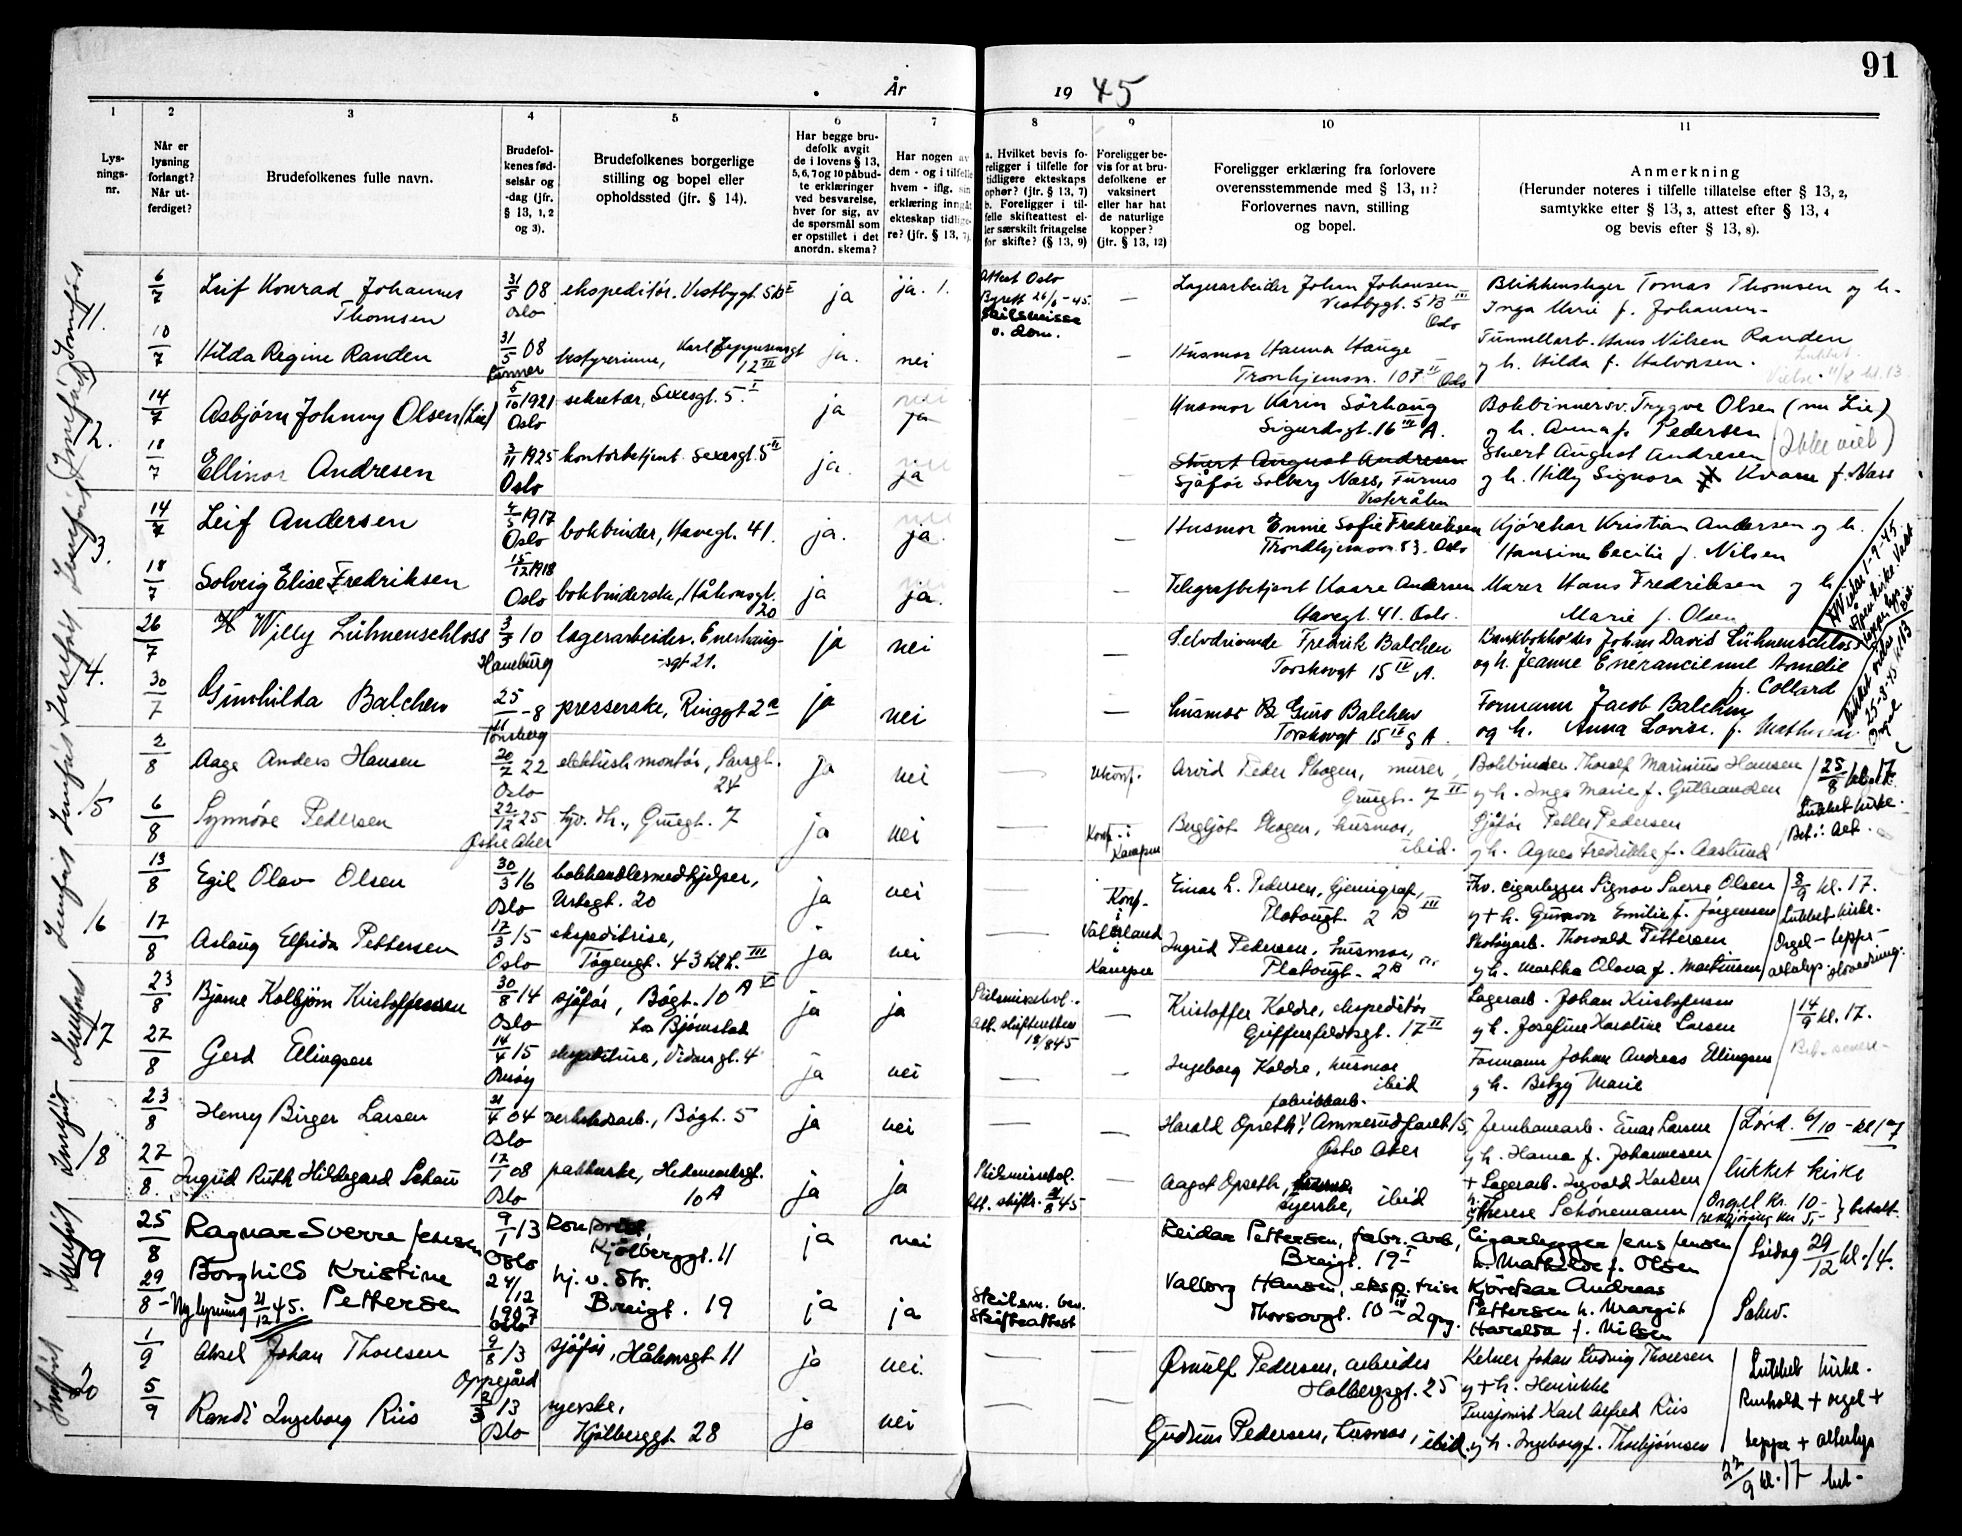 91
År
19 45
1
2
3
4
5
6
7
8
9
10
11
Lys-
nings-
nr.
Når er
lysning
forlangt?
Når ut-
ferdiget?
Brudefolkenes fulle navn.
Brudefol-
kenes fød-
selsår og
-dag (jfr.
§ 13, 1, 2
og 3).
Brudefolkenes borgerlige
stilling og bopel eller
opholdssted (jfr. § 14).
Har begge bru-
defolk avgit
de i lovens § 13,
5, 6, 7 og 10 påbud-
te erklæringer
ved besvarelse,
hver for sig, av
de spørsmål som
er opstillet i det
anordn. skema?
Har nogen av
dem - og i tilfelle
hvem - iflg. sin
erklæring inngåt
ekteskap tidlige-
re? (jfr. § 13, 7).
a. Hvilket bevis fo-
religger i tilfelle for
tidligere ekteskaps
ophør? (jfr. § 13, 7)
b. Foreligger i til-
felle skifteattest el-
ler særskilt fritagelse
for skifte? (§ 13, 9)
Foreligger be-
vis for at bru-
defolkene er
vaksinert
eller har hat
de naturlige
kopper?
(jfr. § 13, 12)
Foreligger erklæring fra forlovere
overensstemmende med § 13, 11?
Forlovernes navn, stilling
og bopel.
Anmerkning
(Herunder noteres i tilfelle tillatelse efter § 13, 2,
samtykke efter § 13, 3, attest efter § 13, 4
og bevis efter § 13, 8).
11.
6/7
Leif Konrad Johannes
Thomsen
31/5 08
Oslo
ekspeditør. Vestbygt. 5B I
ja
ja. 1.
Attest Oslo
Byrett 26/6-45.
Skilsmisse
v. dom.
—
Lagerarbeider John Johansen
Vestbygt. 5B III
Oslo
Blikkenslager Tomas Thomsen og h.
Inga Marie f. Johansen
10/7
Hilda Regine Randen
31/5 08
bestyrerinne, Karl Jeppesensgt
12 III
ja.
nei
—
Husmor Hanna Hauge
Tronhjemsv. 107 II Oslo
Tunnellarb. Hans Nilsen Randen
og h. Hilda f. Halvorsen.
Lukket.
Vielse 11/8 kl. 13
12.
14/7
Asbjørn Johnny Olsen (Lie)
5/10 1921
Oslo
sekretær, Sexesgt. 5. I
ja
ja
—
Husmor Karin Sørhaug
Sigurdsgt. 16 III A.
Bokbindersv. Trygve Olsen (nu Lie)
og h. Anna f. Pedersen
(Ikke viet)
18/7
Ellinor Andresen
3/11 1925
Oslo
kontorbetjent Sexesgt. 5 II
ja.
ja
—
Sjåfør Solberg Næss, Furnes
Sivert August Andresen
og h. Hilly Signora Kvarn f. Næss
13.
14/7
Leif Andersen
4/5 1917
Oslo
bokbinder, Havegt. 41.
ja.
ja.
—
Husmor Emmie Sofie Fredriksen
Trondhjemsv. 83. Oslo
Kjørekar Kristian Andersen og h.
Hansine Cecilie f. Nilsen
18/7
Solveig Elise Fredriksen
15/12 1918
Oslo
bokbinderske, Håkonsgt.
20
ja
ja.
—
Telegrafbetjent Kaare Andersen
Havegt. 41. Oslo.
Murer Hans Fredriksen og h.
Marie f. Olsen
14.
26/7
Willy Lühmenschloss
3/3 10
Hamburg
lagerarbeider. Enerhaug-
sgt 21.
ja
nei
—
Selvdrivende Fredrik Balchen
Torshovgt 15 IV A.
Bankbokholder Johan David Lühmenschloss
og h. Jeanne Enerancienne Amelie
f. Collard
30/7
Gunhilda Balchen
25/11-8
Tønsberg
presserske, Ringgt 2a
ja
nei
—
husmor Guro Balchen
Torshovgt 15 IV A.
Formann Jacob Balchen
og h. Anna Lovise f. Mathisen
15
2/8
Aage Anders Hansen
20/7 22
Oslo
elektrisk montør, Sarsgt.
24
ja
nei
—
ukonf.
Arvid Peder Skogen, murer,
Gruegt. 7 III
Bokbinder Thoralf Marinius Hansen
og h. Inga Marie f. Gulbrandsen
25/8 kl. 17
Lukket kirke.
Bet. i alt.
6/8
Synnøve Pedersen
22/12 25
Østre Aker
hjv. dt., Gruegt. 7
ja
nei
—
Konf. i
Kampen
Bergljot Skogen, husmor,
ibid.
Sjåfør Petter Pedersen
og h. Agnes Fredrikke f. Aaslund
16
13/8
Egil Olav Olsen
30/3 16
Oslo
bokhandlermedhjelper,
Urtegt. 20
ja
nei
—
Konf.
i
Vålerland
Einar L. Pedersen, kjemigraf,
Platousgt. 2 B III
Fhv. cigarlegger Signor Sverre Olsen
og + h. Gunvor Emilie f. Jørgensen
8/9 kl. 17.
Lukket kirke.
17/8
Aslaug Elfrida Pettersen
17/3 15
Oslo
ekspeditrise,
Tøyengt. 43 III
ja
nei
—
i
Kampen
Ingrid Pedersen, husmor,
Platousgt. 2B
Thorvald Pettersen
og h. Martha Olava f. Martinsen
Orgel- teppe-
17
23/8
Bjarne Kolbjørn Kristoffersen
30/8 14
Oslo
sjåfør, Bøgt. 10 A V
hos Bjørnstad
ja
ja
Skilsmissebev.
Att. skifteretten
18/8 45
—
Kristoffer Koldre, ekspeditør
Griffenfeldtsgt. 17 II
Lagerarb. Johan Kristoffersen
og h. Josefine Karoline Larsen
14/9 kl. 17.
27/8
Gerd Ellingsen
14/4 15
Onsøy
ekspeditrise, Vidarsgt. 4
ja
nei
—
—
Ingeborg Koldre, husmor
ibid
Formann Johan Andreas Ellingsen
og h. Betzy Marie
18
23/8
Henry Birger Larsen
21/4 04
Oslo
verkstedsarb., Bøgt. 5
ja
nei
—
—
fabrikkarb.
Harald Opseth, Ammerudfaret 15,
Østre Aker
Jernbanearb. Einar Larsen
og h. Hanna f. Johannesen
Lørd. 6/10 - kl 17
lukket kirke
27/8.
Ingrid Ruth Hildegard Schau
17/1 08
Oslo
pakkerske, Hedemarksgt.
10 A
ja
ja
Skilsmissebev.
Att. skifte. 45
Aagot Opseth,
syerske, ibid
+ Lagerarb. Ingvald Karlsen
og h. Therese Schønemann
Orgel kr. 10-
rengjøring kr 5,- } betalt.
19
25/8
Ragnar Sverre Jensen
9/1-13
Oslo
Kjølberggt. 11
ja
nei
Reidar Pettersen, fabr. arb,
Breigt. 19 I
Cigarlegger Jens Jensen
h. Mathilde f. Olsen
Lørdag 29/12 kl. 14.
29/8 -
Borghild Kristine
Pettersen
Ny lysning 21/12 45.
24/12
1907
Oslo
hj. v. str.
Breigt. 19
ja
ja
Skilsm. bev.
Skifteattest
Valborg Hansen, eksp. trise
Thorsovgt. 10 IV 2 opg.
Kørekar Andreas
Pettersen h. Margit
Haralda f. Nilsen
20
1/9
Aksel Johan Thoresen
9/8 13
Oppegård
sjåfør, Håkonsgt 11
ja
nei.
—
—
Ørnulf Pedersen, arbeider
Holbergsgt. 25
Kelner Johan Ludvig Thoresen
og + h. Henrikke
Lukket kirke.
5/9
Randi Ingeborg Riis
2/3 13
Oslo
syerske,
Kjølberggt. 28
ja
nei
—
—
Gudrun Pedersen, husmor, ibid.
Pensjonist Karl Alfred Riis
og h. Ingeborg f. Thorbjørnsen
+ orgel +
teppe + alterlys
22/9 kl. 17 bet-